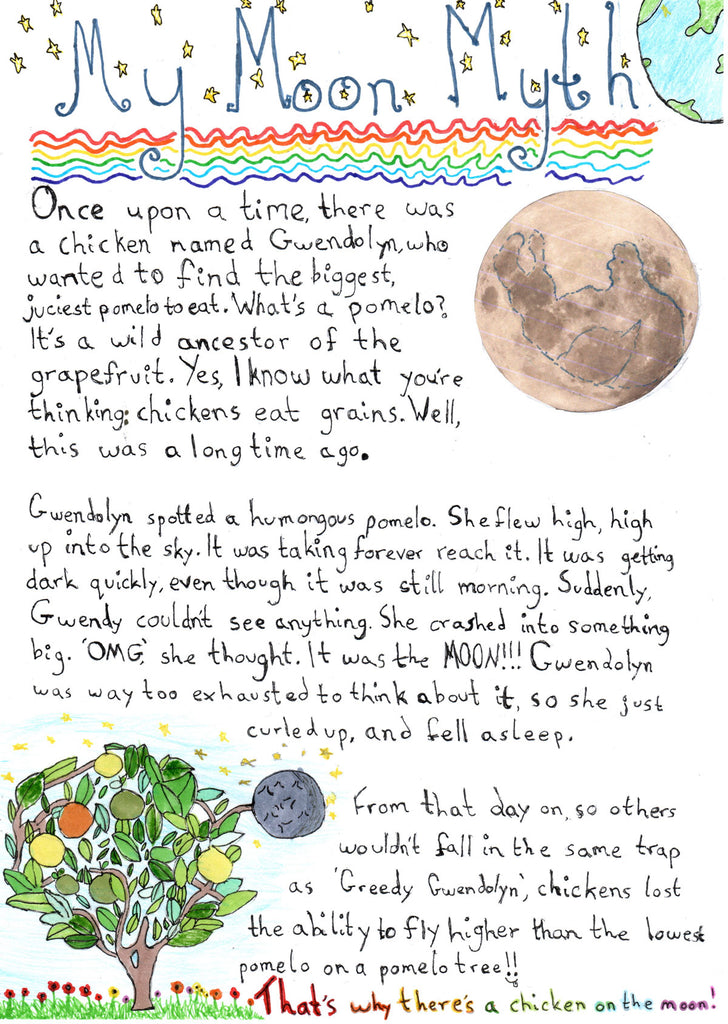 My Moon Myth
Once upon a time, there was
a chicken named Gwendolyn, who
wanted to find the biggest,
juciest pomelo to eat. What's a pomelo?
It's a wild ancestor of the
grapefruit. Yes, I know what you're
thinking: chickens eat grains. Well,
this was a long time ago.
Gwendolyn spotted a humongous pomelo. She flew high, high
up into the sky. It was taking forever reach it. It was getting
dark quickly, even though it was still morning. Suddenly,
Gwendy couldn't see anything. She crashed into something
big. 'OMG,' she thought. It was the MOON!!! Gwendolyn
was way too exhausted to think about it, so she just
curled up, and fell asleep.
From that day on, so others
wouldn't fall in the same trap
as 'Greedy Gwendolyn', chickens lost
the ability to fly higher than the lowest
pomelo on a pomelo tree!!
That's why there's a chicken on the moon!